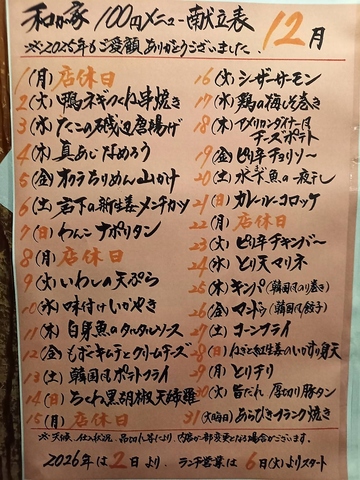 和が家 100円メニュー献立表
※2025年もご愛顧ありがとうございました。
12月
1(月) 店休日
2(火) 鴨ネギつくね串焼き
3(水) たこの磯辺唐揚げ
4(木) 真あじなめろう
5(金) オクラちりめん山かけ
6(土) 岩下の新生姜メンチカツ
7(日) わんこナポリタン
8(月) 店休日
9(火) いわしの天ぷら
10(水) 味付けいかやき
11(木) 白身魚のタルタルソース
12(金) もずくキムチとクリームチーズ
13(土) 韓国風ポテトフライ
14(日) ちくわ黒胡椒天婦羅
15(月) 店休日
16(火) シーザーサーモン
17(水) 鶏の海しそ巻き
18(木) アメリカンダイナー風
チーズポテト
19(金) ピリ辛チョリソー
20(土) 水下魚の一夜干し
21(日) カレーコロッケ
22(月) 店休日
23(火) ピリ辛チキンバー
24(水) とり天マリネ
25(木) キンパ(韓国風のり巻き)
26(金) マンドゥ(韓国風餃子)
27(土) コーンフライ
28(日) ねぎと紅生姜のいかすり身天
29(月) とりチリ
30(火) 旨だれ 厚切り豚タン
31(大晦日) あらびきフランク焼き
※天候、仕入状況、品切れ等により、内容が一部変更となる場合がございます。
2026年は2日より、ランチ営業は6日(火)よりスタート